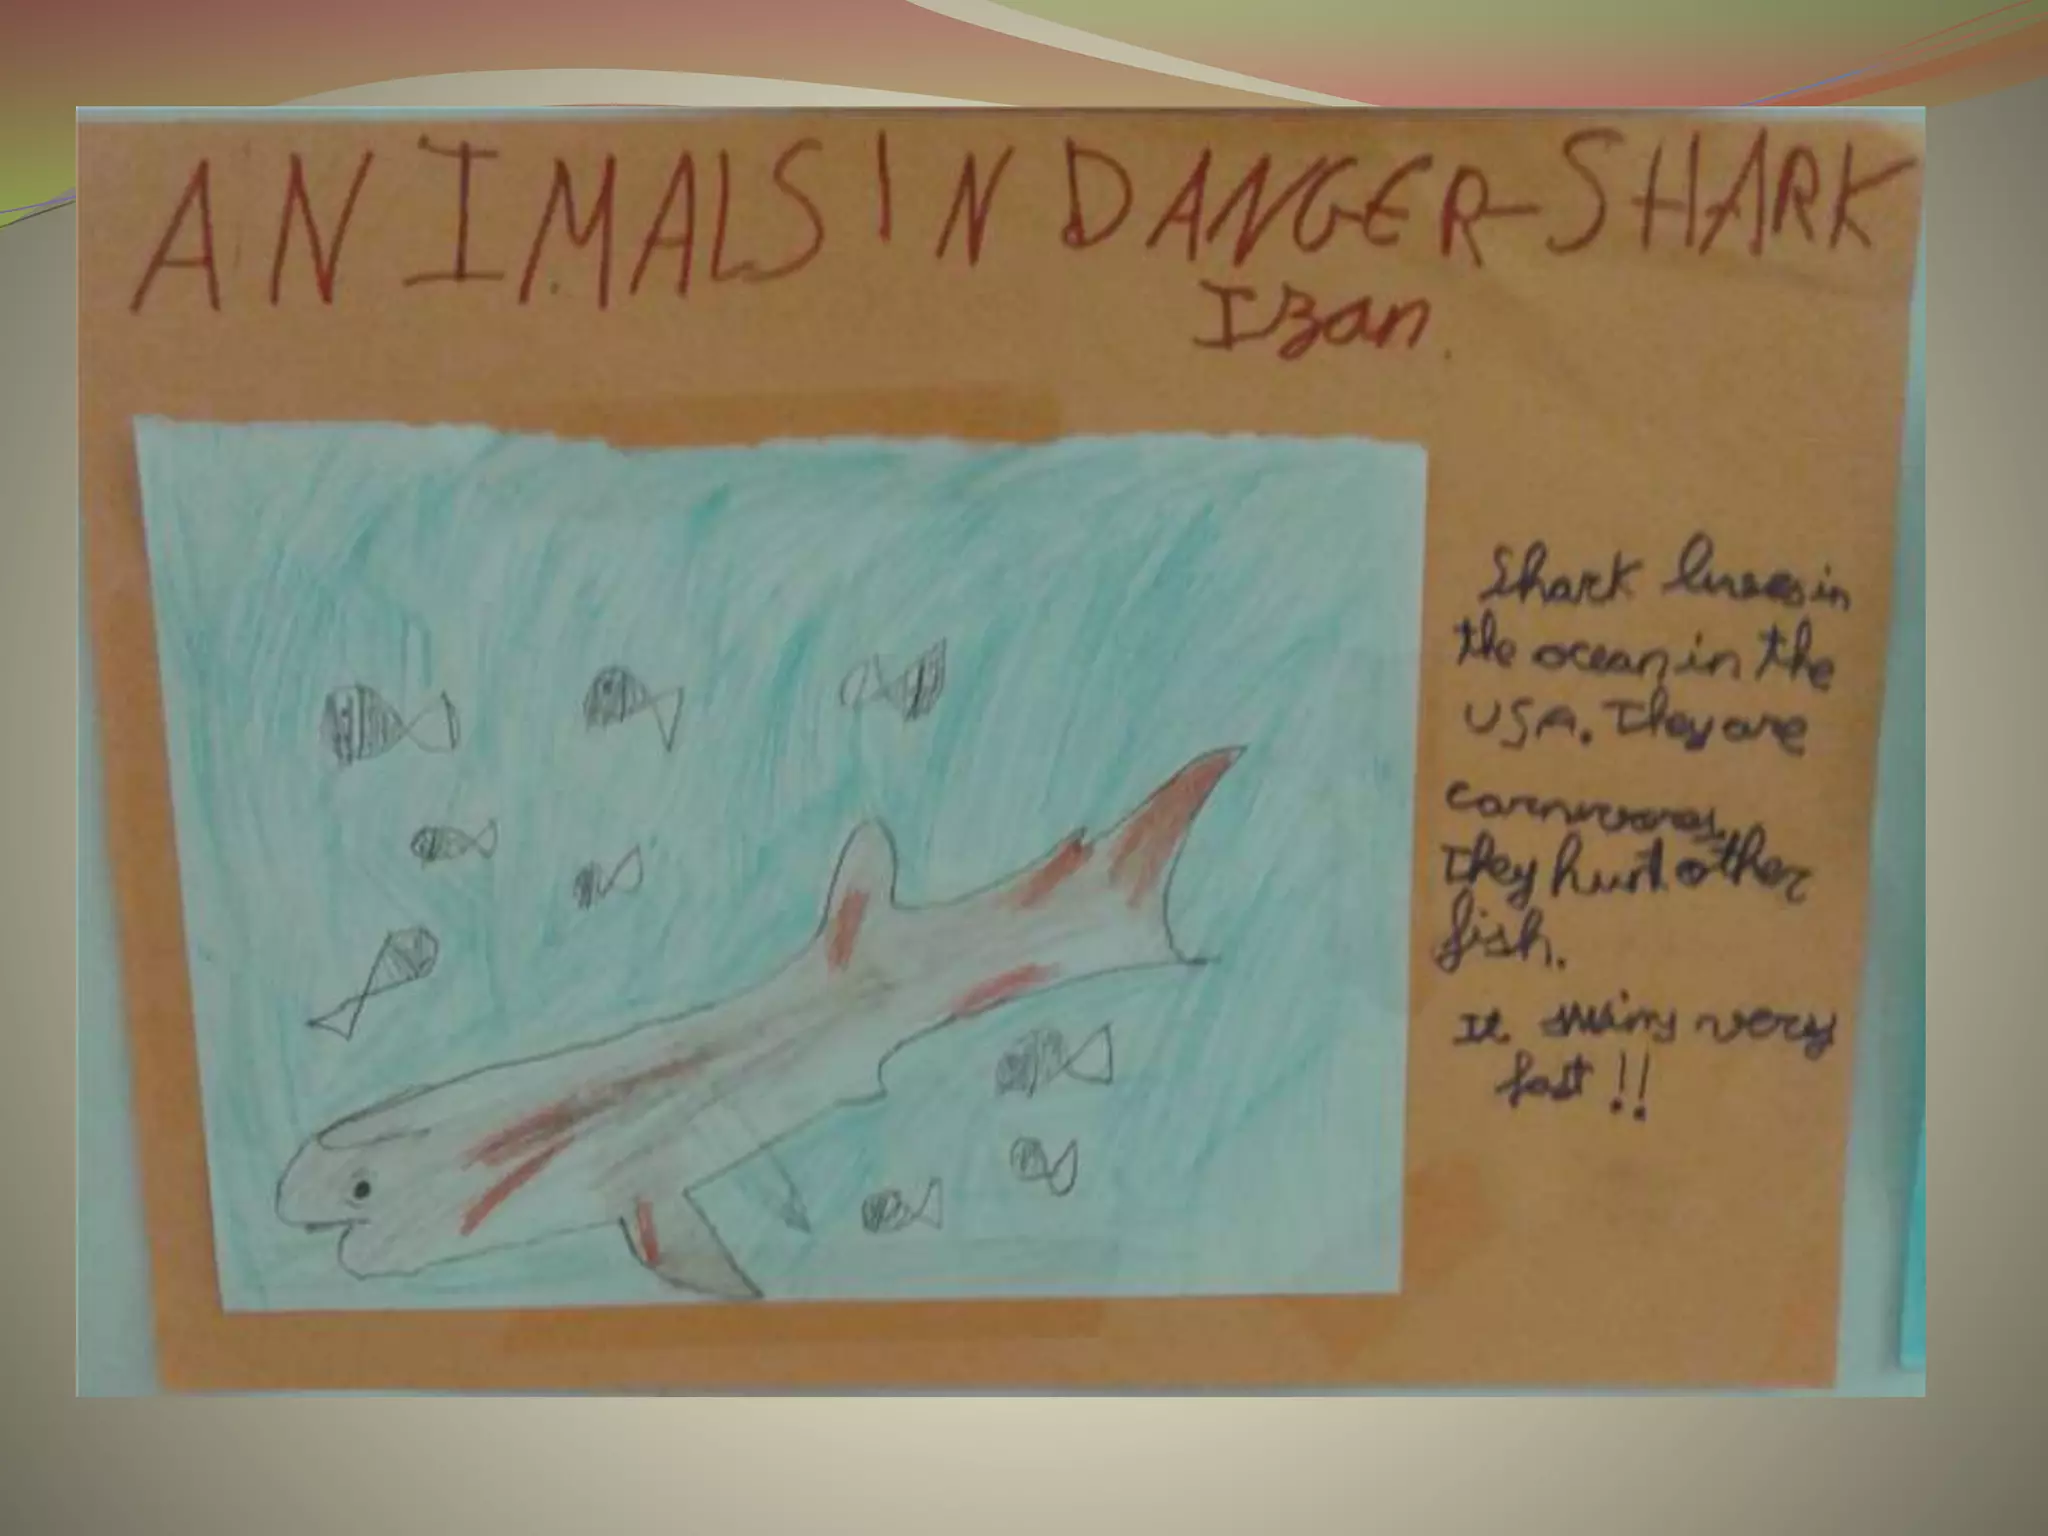 ANIMALS IN DANGER-SHARK
Izan.
Shark lives in
the ocean in the
USA. They are
carnivores.
They hunt other
fish.
It swims very
fast!!